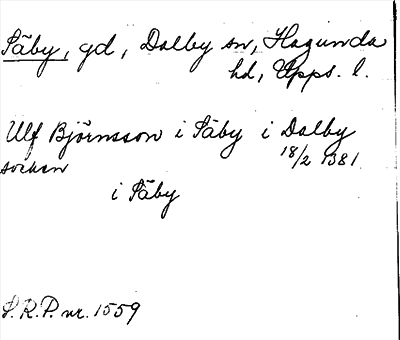 Säby, gd, Dalby sn, Hagunda
hd, Upps. l.
Ulf Björnsson i Säby i Dalby
socken 18/2 1381
i Säby
S.R.P. nr. 1559